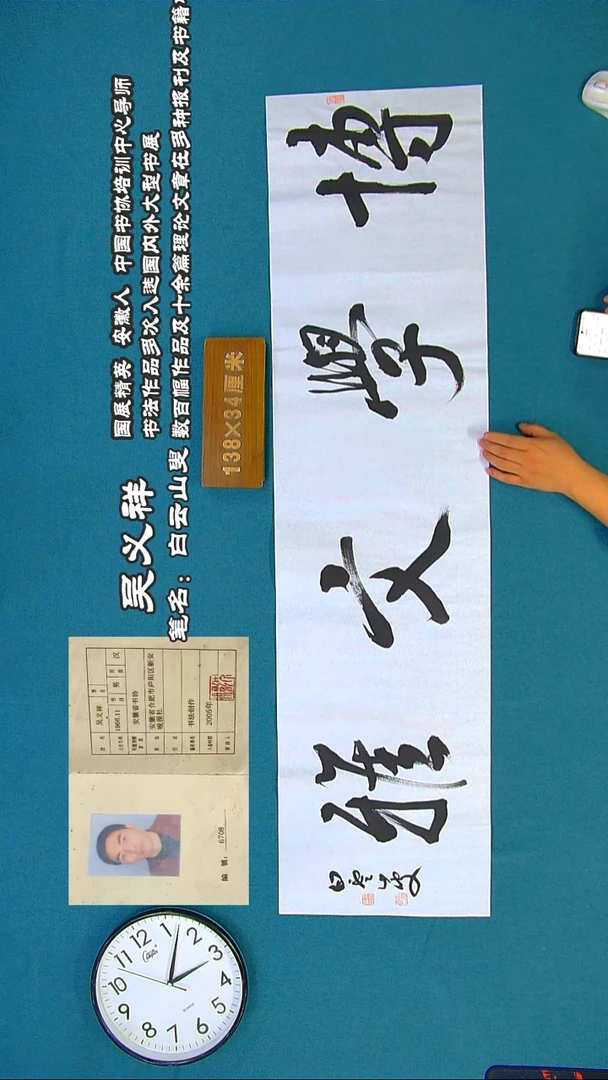 吴义祥
国展精英 安徽人 中国书协培训中心导师
书法作品多次入选国内外大型书展
笔名：白云山叟 数百幅作品及十余篇理论文章在多种报刊及书籍
138×34厘米
博學文雅
白雲山叟
姓名 吴义祥
性别 男 民族 汉
1966.11
安徽省书协
安徽省合肥市庐阳区新安晚报社
书法创作
2005年
编号：6708
12 1 2 3 4 5 6 7 8 9 10 11
QUARTZ